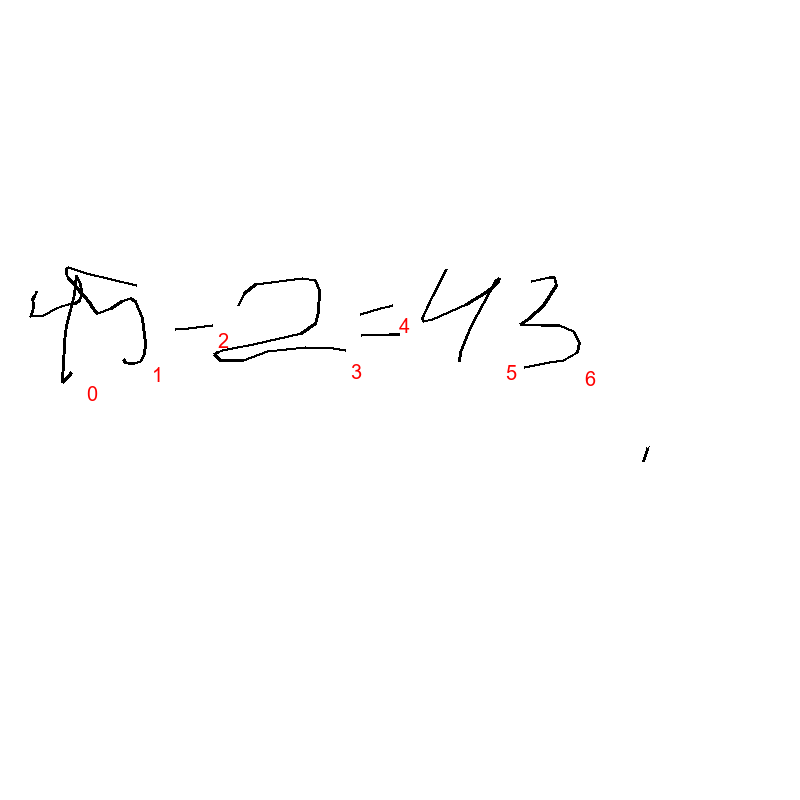 45 - 2 = 43
0 1 2 3 4 5 6